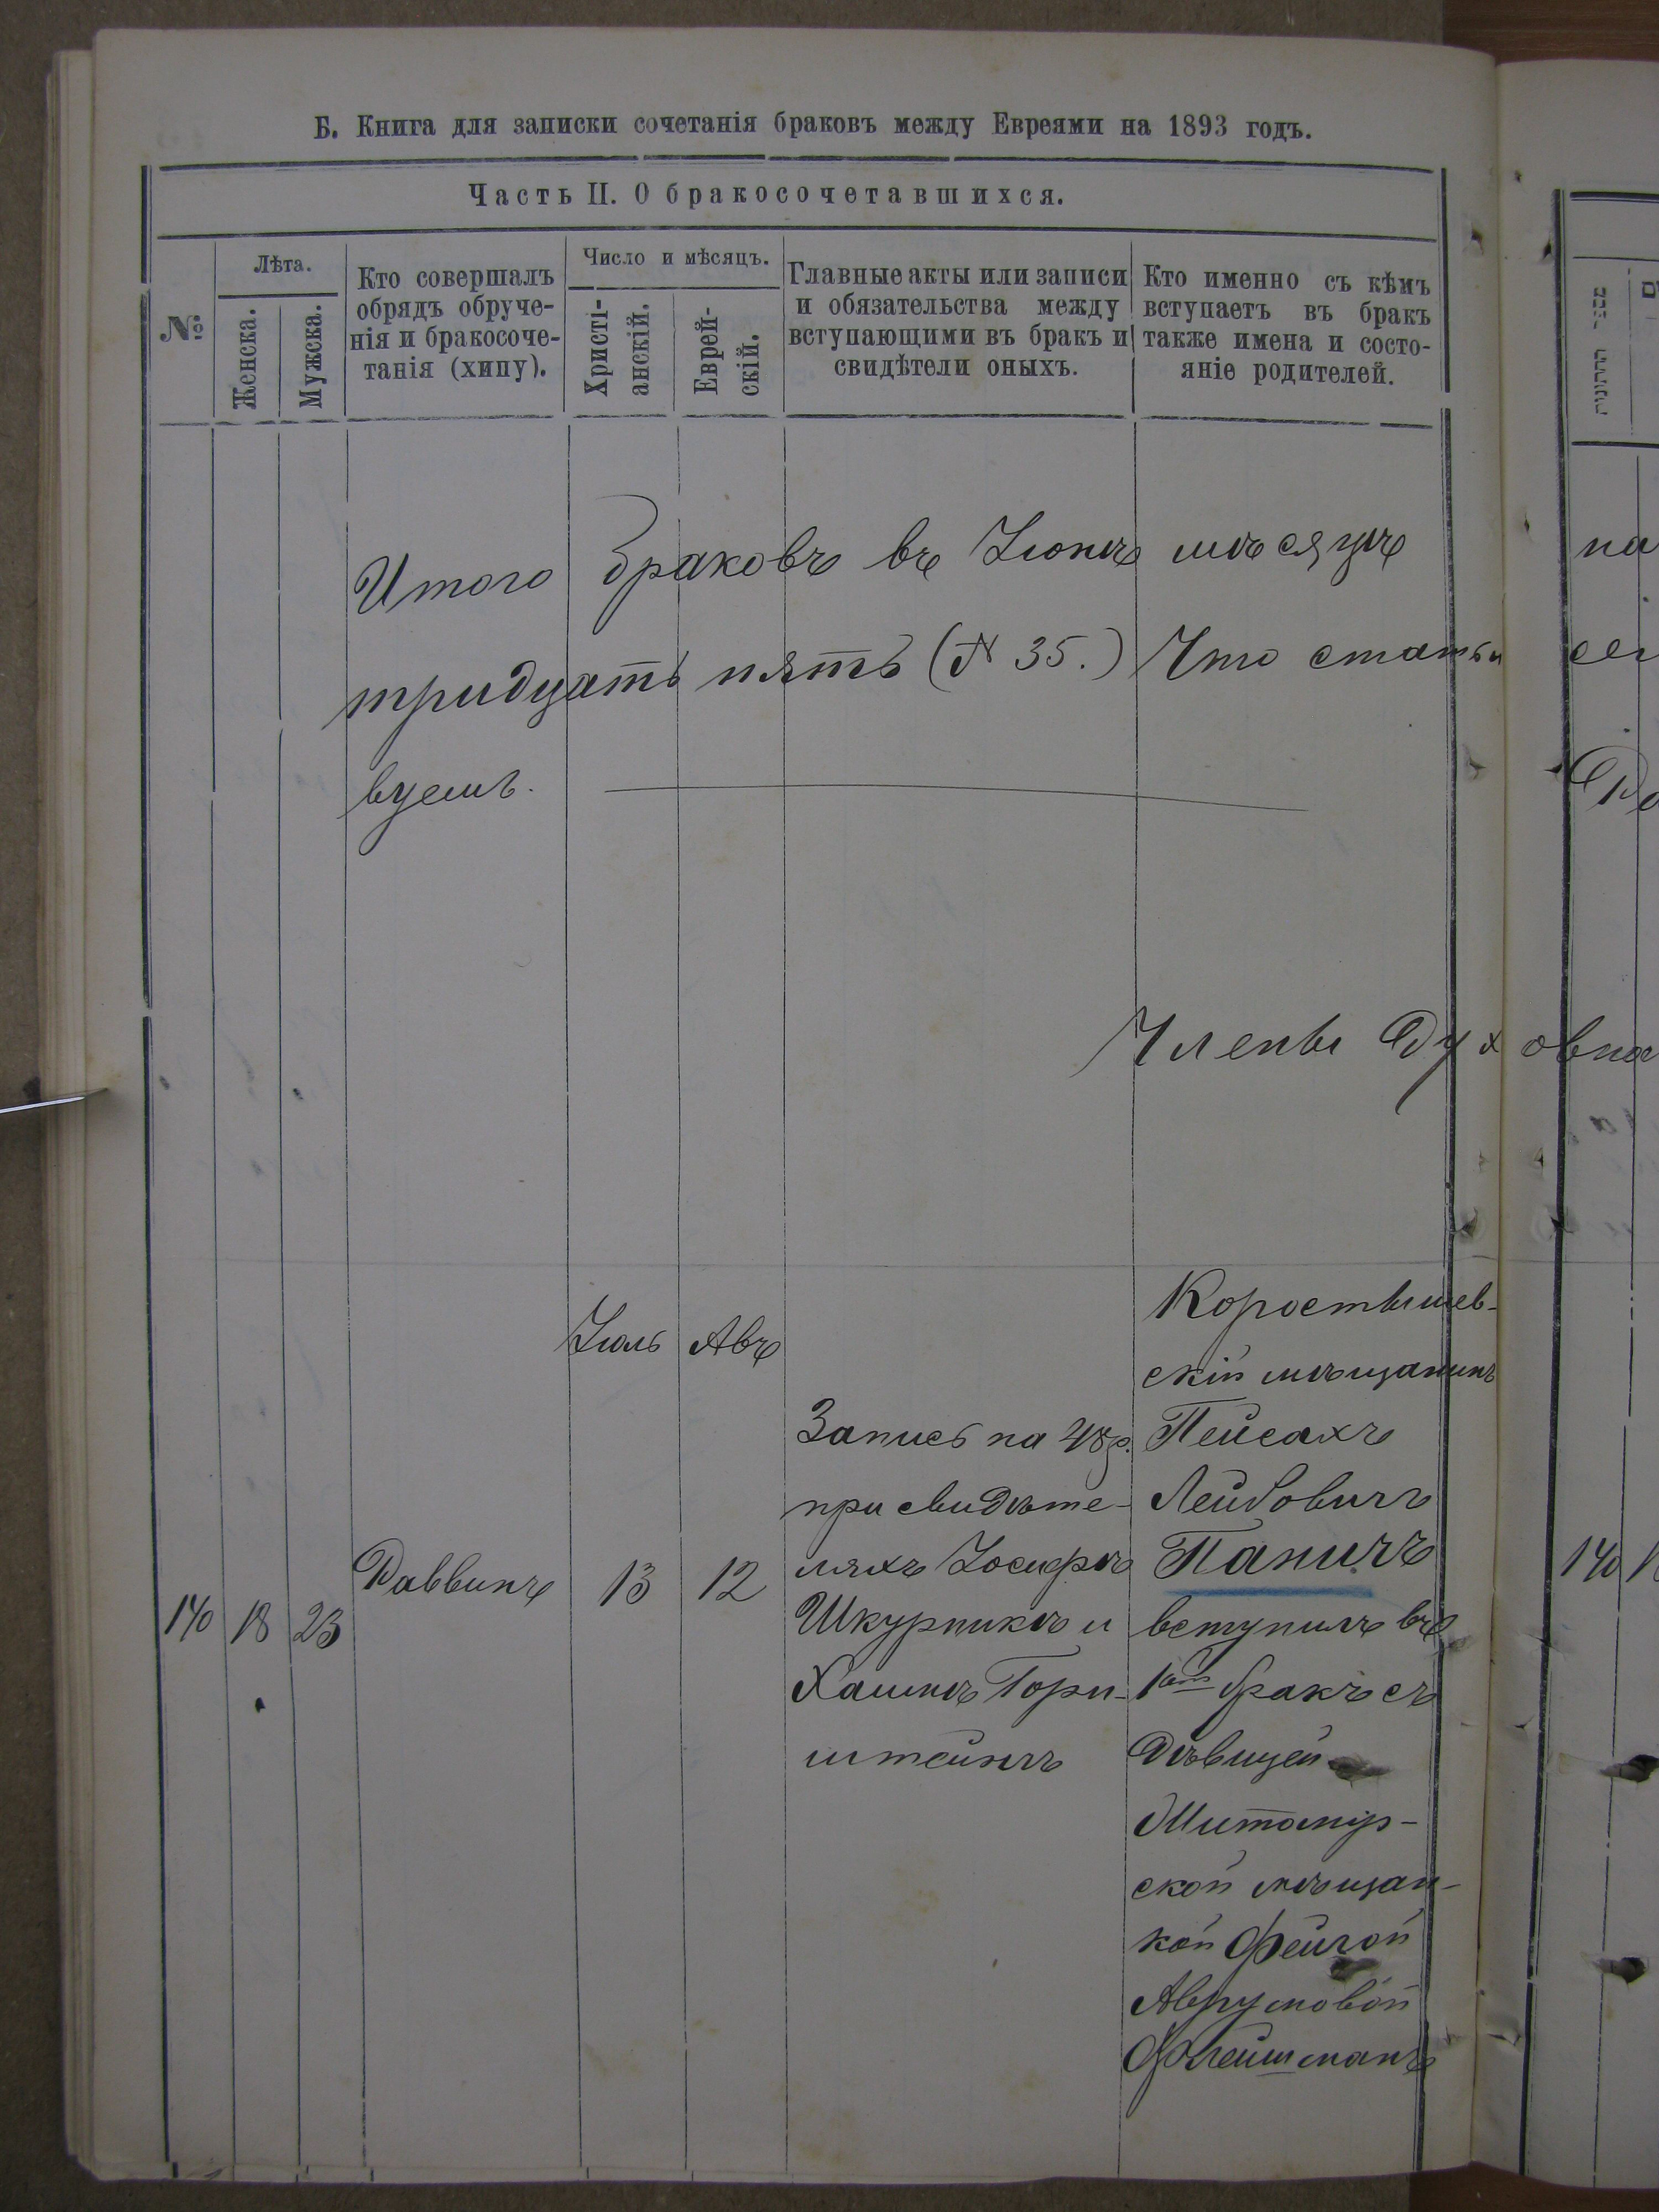 Б. Книга для записки сочетанія браковъ между Евреями на 1893 годъ.
Часть II. О бракосочетавшихся.
№
Лѣта.
Женска.
Мужска.
Кто совершалъ
обрядъ обруче-
нія и бракосоче-
танія (хипу).
Число и мѣсяцъ.
Христі-
анскій.
Еврей-
скій.
Главные акты или записи
и обязательства между
вступающими въ бракъ и
свидѣтели оныхъ.
Кто именно съ кѣмъ
вступаетъ въ бракъ
также имена и состо-
яніе родителей.
Итого браковъ въ Іюнѣ мѣсяцѣ
тридцать пять (№ 35.) Что
вуемъ.
Члены Духовна
Іюль
Авъ
140
18
23
Раввинъ
13
12
Запись на 48 р.
при свидѣте-
ляхъ Іосифѣ
Шкурникѣ и
Хаимѣ Горн-
штейнѣ
Коростышев-
скій мѣщанинъ
Пейсахъ
Лейбовичъ
Паничъ
вступилъ въ
1ый бракъ съ
дѣвицей
Житомір-
ской мѣщан-
кой Фейгой
Аврумовой
Флейшманъ
140